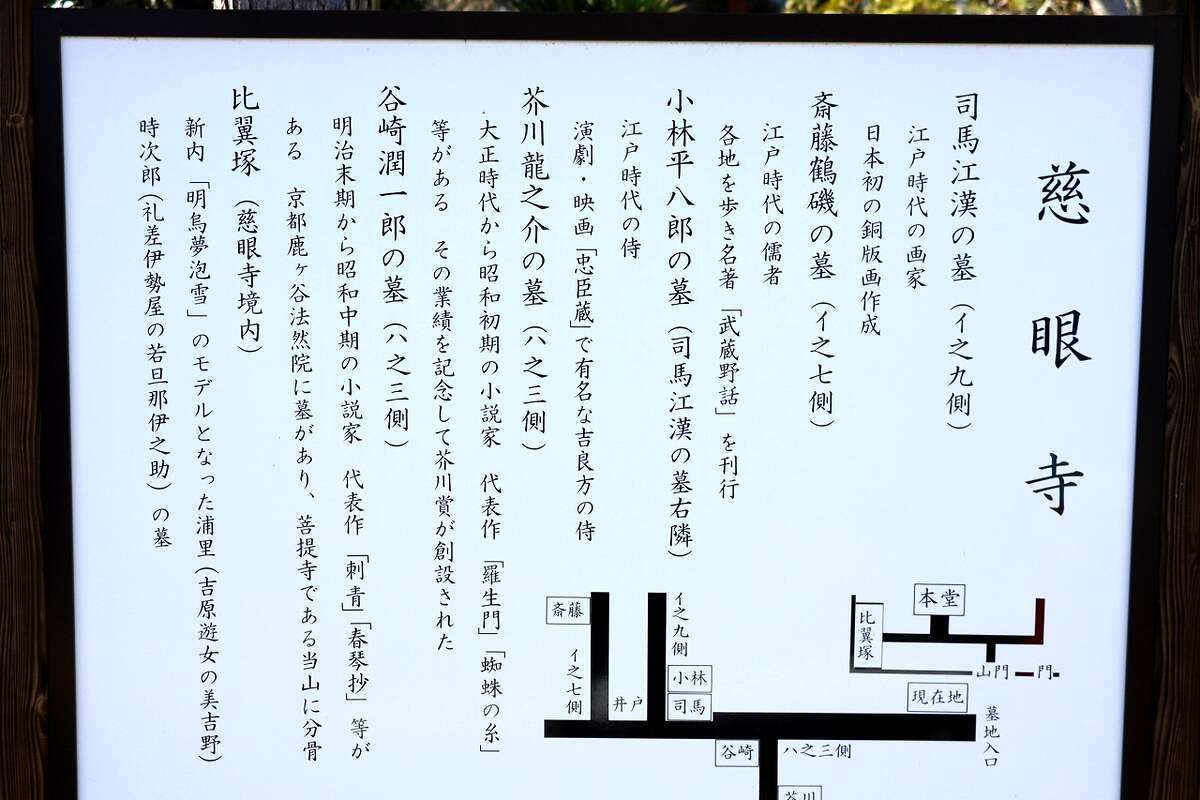 慈眼寺
司馬江漢の墓（イ之九側）
江戸時代の画家
日本初の銅版画作成
斎藤鶴磯の墓（イ之七側）
江戸時代の儒者
各地を歩き名著「武蔵野話」を刊行
小林平八郎の墓（司馬江漢の墓右隣）
江戸時代の侍
演劇・映画「忠臣蔵」で有名な吉良方の侍
芥川龍之介の墓（ハ之三側）
大正時代から昭和初期の小説家　代表作「羅生門」「蜘蛛の糸」
等がある　その業績を記念して芥川賞が創設された
谷崎潤一郎の墓（ハ之三側）
明治末期から昭和中期の小説家　代表作「刺青」「春琴抄」等が
ある　京都鹿ヶ谷法然院に墓があり、菩提寺である当山に分骨
比翼塚（慈眼寺境内）
新内「明烏夢泡雪」のモデルとなった浦里（吉原遊女の美吉野）
時次郎（礼差伊勢屋の若旦那伊之助）の墓
本堂
比翼塚
山門
門
現在地
墓地入口
イ之九側
小林
司馬
斎藤
イ之七側
井戸
谷崎
ハ之三側
芥川